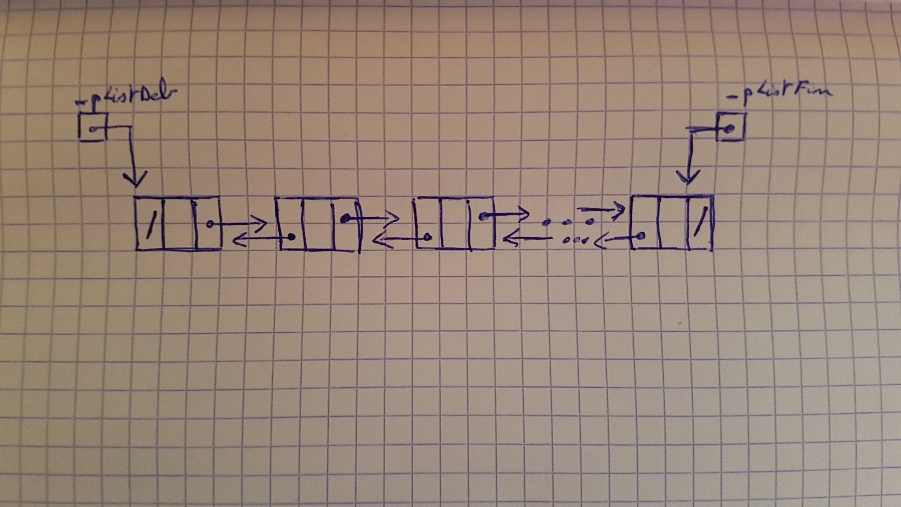 -pListDeb
-pListFin